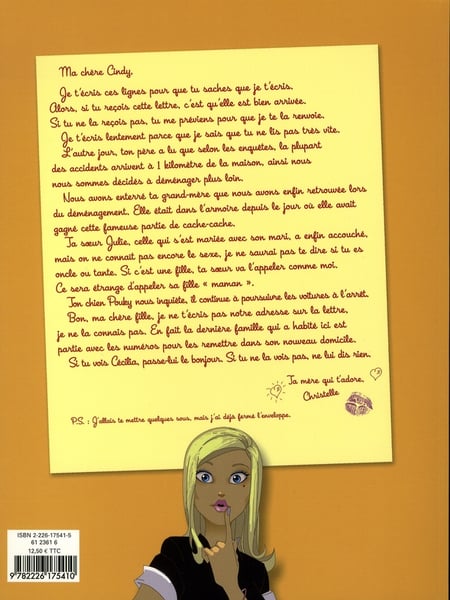 Ma chère Cindy,
Je t'écris ces lignes pour que tu saches que je t'écris.
Alors, si tu reçois cette lettre, c'est qu'elle est bien arrivée.
Si tu ne la reçois pas, tu me préviens pour que je te la renvoie.
Je t'écris lentement parce que je sais que tu ne lis pas très vite.
L'autre jour, ton père a lu que selon les enquêtes, la plupart
des accidents arrivent à 1 kilomètre de la maison, ainsi nous
nous sommes décidés à déménager plus loin.
Nous avons enterré ta grand-mère que nous avons enfin retrouvée lors
du déménagement. Elle était dans l'armoire depuis le jour où elle avait
gagné cette fameuse partie de cache-cache.
Ta sœur Julie, celle qui s'est mariée avec son mari, a enfin accouché,
mais on ne connait pas encore le sexe, je ne saurai pas te dire si tu es
oncle ou tante. Si c'est une fille, ta sœur va l'appeler comme moi.
Ce sera étrange d'appeler sa fille « maman ».
Ton chien Pouky nous inquiète, il continue à poursuivre les voitures à l'arrêt.
Bon, ma chère fille, je ne t'écris pas notre adresse sur la lettre,
je ne la connais pas. En fait la dernière famille qui a habité ici est
partie avec les numéros pour les remettre dans son nouveau domicile.
Si tu vois Cécilia, passe-lui le bonjour. Si tu ne la vois pas, ne lui dis rien.
Ta mère qui t'adore,
Christelle
P.S. : J'allais te mettre quelques sous, mais j'ai déjà fermé l'enveloppe.
ISBN 2-226-17541-5
61 2361 6
12,50 € TTC
9 782226 175410